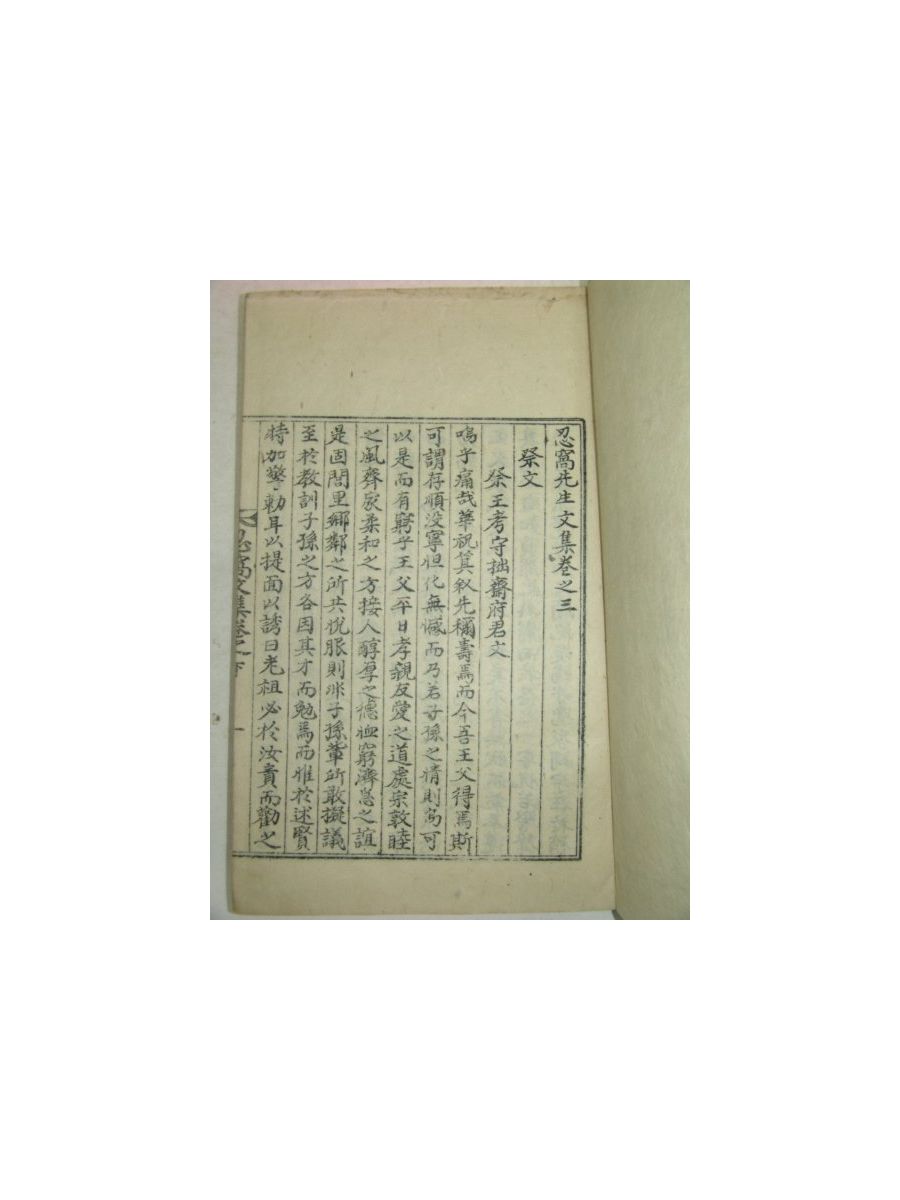 忍窩先生文集卷之三
祭文
祭王考守拙齋府君文
嗚乎痛哉華祝箕叙先稱壽焉而今吾王父得焉斯
可謂存順没寧怛化無憾而乃若子孫之情則寧可
以是而有窮乎王父平日孝親友愛之道處宗敦睦
之風齊家柔和之方接人醇厚之德恤窮濟急之誼
是固閭里鄉鄰之所共悅服則非子孫輩所敢擬議
至於教訓子孫之方各因其才而勉焉而惟於述賢
特加警勅耳以提面以誘曰老祖必於汝責而勸之
忍窩文集卷之下 一